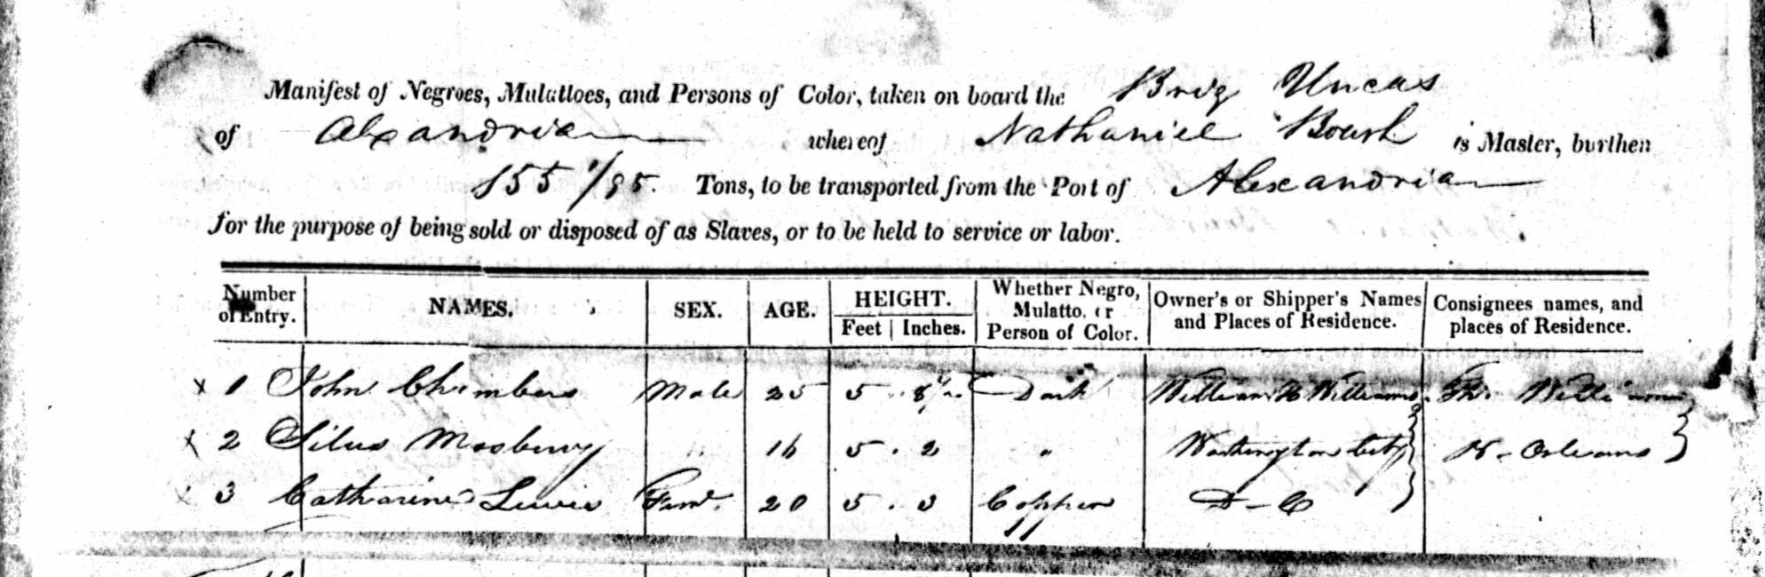 Manifest of Negroes, Mulattoes, and Persons of Color, taken on board the Brig Uncas
of Alexandria whereof Nathaniel Boush is Master, burthen
155 1/95. Tons, to be transported from the Port of Alexandria
for the purpose of being sold or disposed of as Slaves, or to be held to service or labor.
Number of Entry. NAMES. SEX. AGE. HEIGHT. Feet Inches. Whether Negro, Mulatto, or Person of Color. Owner's or Shipper's Names and Places of Residence. Consignees names, and places of Residence.
x 1 John Chambers Male 25 5 . 8 1/2 Dark William H Williams Williams
x 2 Silus Mosbury " 16 5 . 2 " Washington City N. Orleans
x 3 Catharine Lewis Fem. 20 5 . 3 Copper D - C